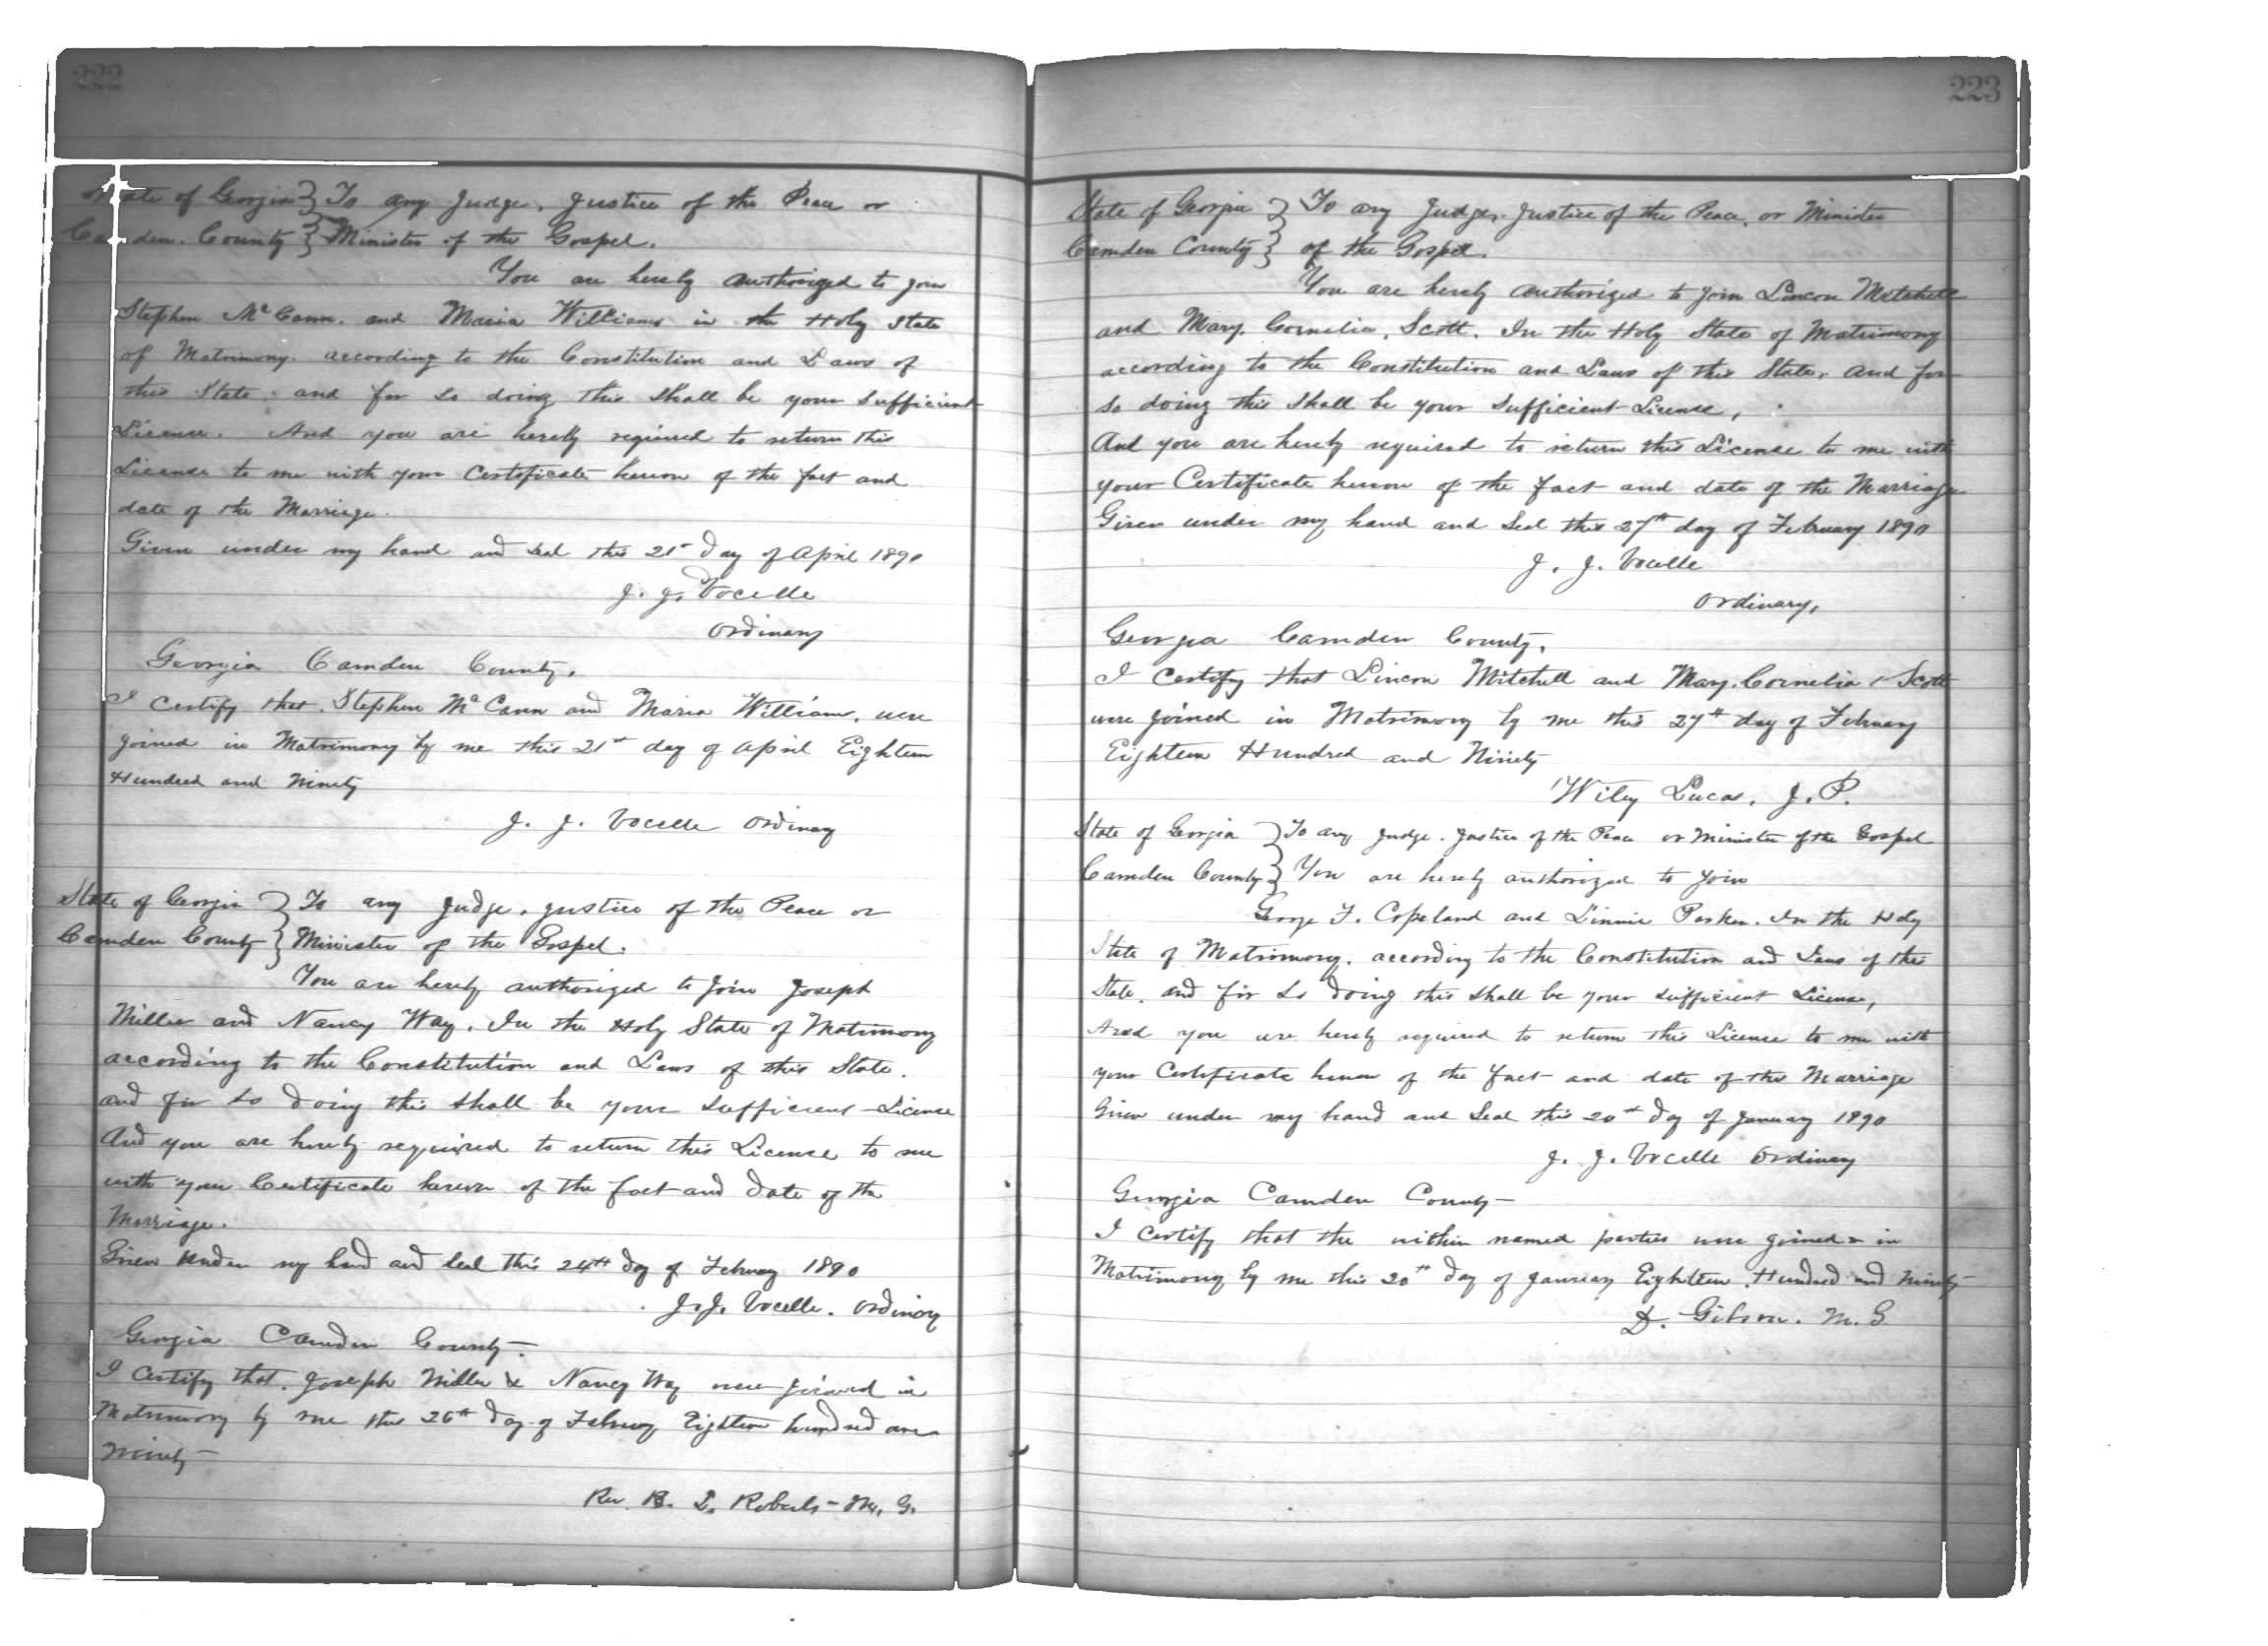 222
State of Georgia } To any Judge, Justice of the Peace or
Camden County } Minister of the Gospel.
You are hereby authorized to join
Stephen McCann and Maria Williams in the Holy State
of Matrimony according to the Constitution and Laws of
this State, and for so doing this shall be your sufficient
License. And you are hereby required to return this
License to me with your Certificate hereon of the fact and
date of the Marriage.
Given under my hand and seal this 21st day of April 1890
J. J. Vocelle
Ordinary
Georgia Camden County,
I Certify that Stephen McCann and Maria Williams, were
joined in Matrimony by me this 21st day of April Eighteen
Hundred and Ninety
J. J. Vocelle Ordinary
State of Georgia } To any Judge, Justice of the Peace or
Camden County } Minister of the Gospel.
You are hereby authorized to join Joseph
Miller and Nancy Way. In the Holy State of Matrimony
according to the Constitution and Laws of this State.
and for so doing this shall be your sufficient License
And you are hereby required to return this License to me
with your Certificate hereon of the fact and date of the
Marriage.
Given under my hand and seal this 24th day of February 1890
J. J. Vocelle. Ordinary
Georgia Camden County—
I Certify that Joseph Miller & Nancy Way were joined in
Matrimony by me this 26th day of February Eighteen hundred and
Ninety—
Rev. R. L. Roberts - M. G.
223
State of Georgia } To any Judge, Justice of the Peace, or Minister
Camden County } of the Gospel.
You are hereby authorized to join Lincon Mitchell
and Mary Cornelia Scott. In the Holy State of Matrimony
according to the Constitution and Laws of this State, and for
so doing this shall be your sufficient License,
And you are hereby required to return this License to me with
your Certificate hereon of the fact and date of the Marriage
Given under my hand and Seal this 27th day of February 1890
J. J. Vocelle
Ordinary,
Georgia Camden County,
I Certify that Lincon Mitchell and Mary Cornelia Scott
were joined in Matrimony by me this 27th day of February
Eighteen Hundred and Ninety
Wiley Lucas, J. P.
State of Georgia } To any Judge, Justice of the Peace or Minister of the Gospel
Camden County } You are hereby authorized to join
George F. Copeland and Linnie Parker. In the Holy
State of Matrimony, according to the Constitution and Laws of this
State, and for so doing this shall be your sufficient License,
And you are hereby required to return this License to me with
your Certificate hereon of the fact and date of the Marriage
Given under my hand and Seal this 20th day of January 1890
J. J. Vocelle Ordinary
Georgia Camden County—
I Certify that the within named parties were joined in
Matrimony by me this 20th day of January Eighteen Hundred and Ninety
D. Gibson. M. G